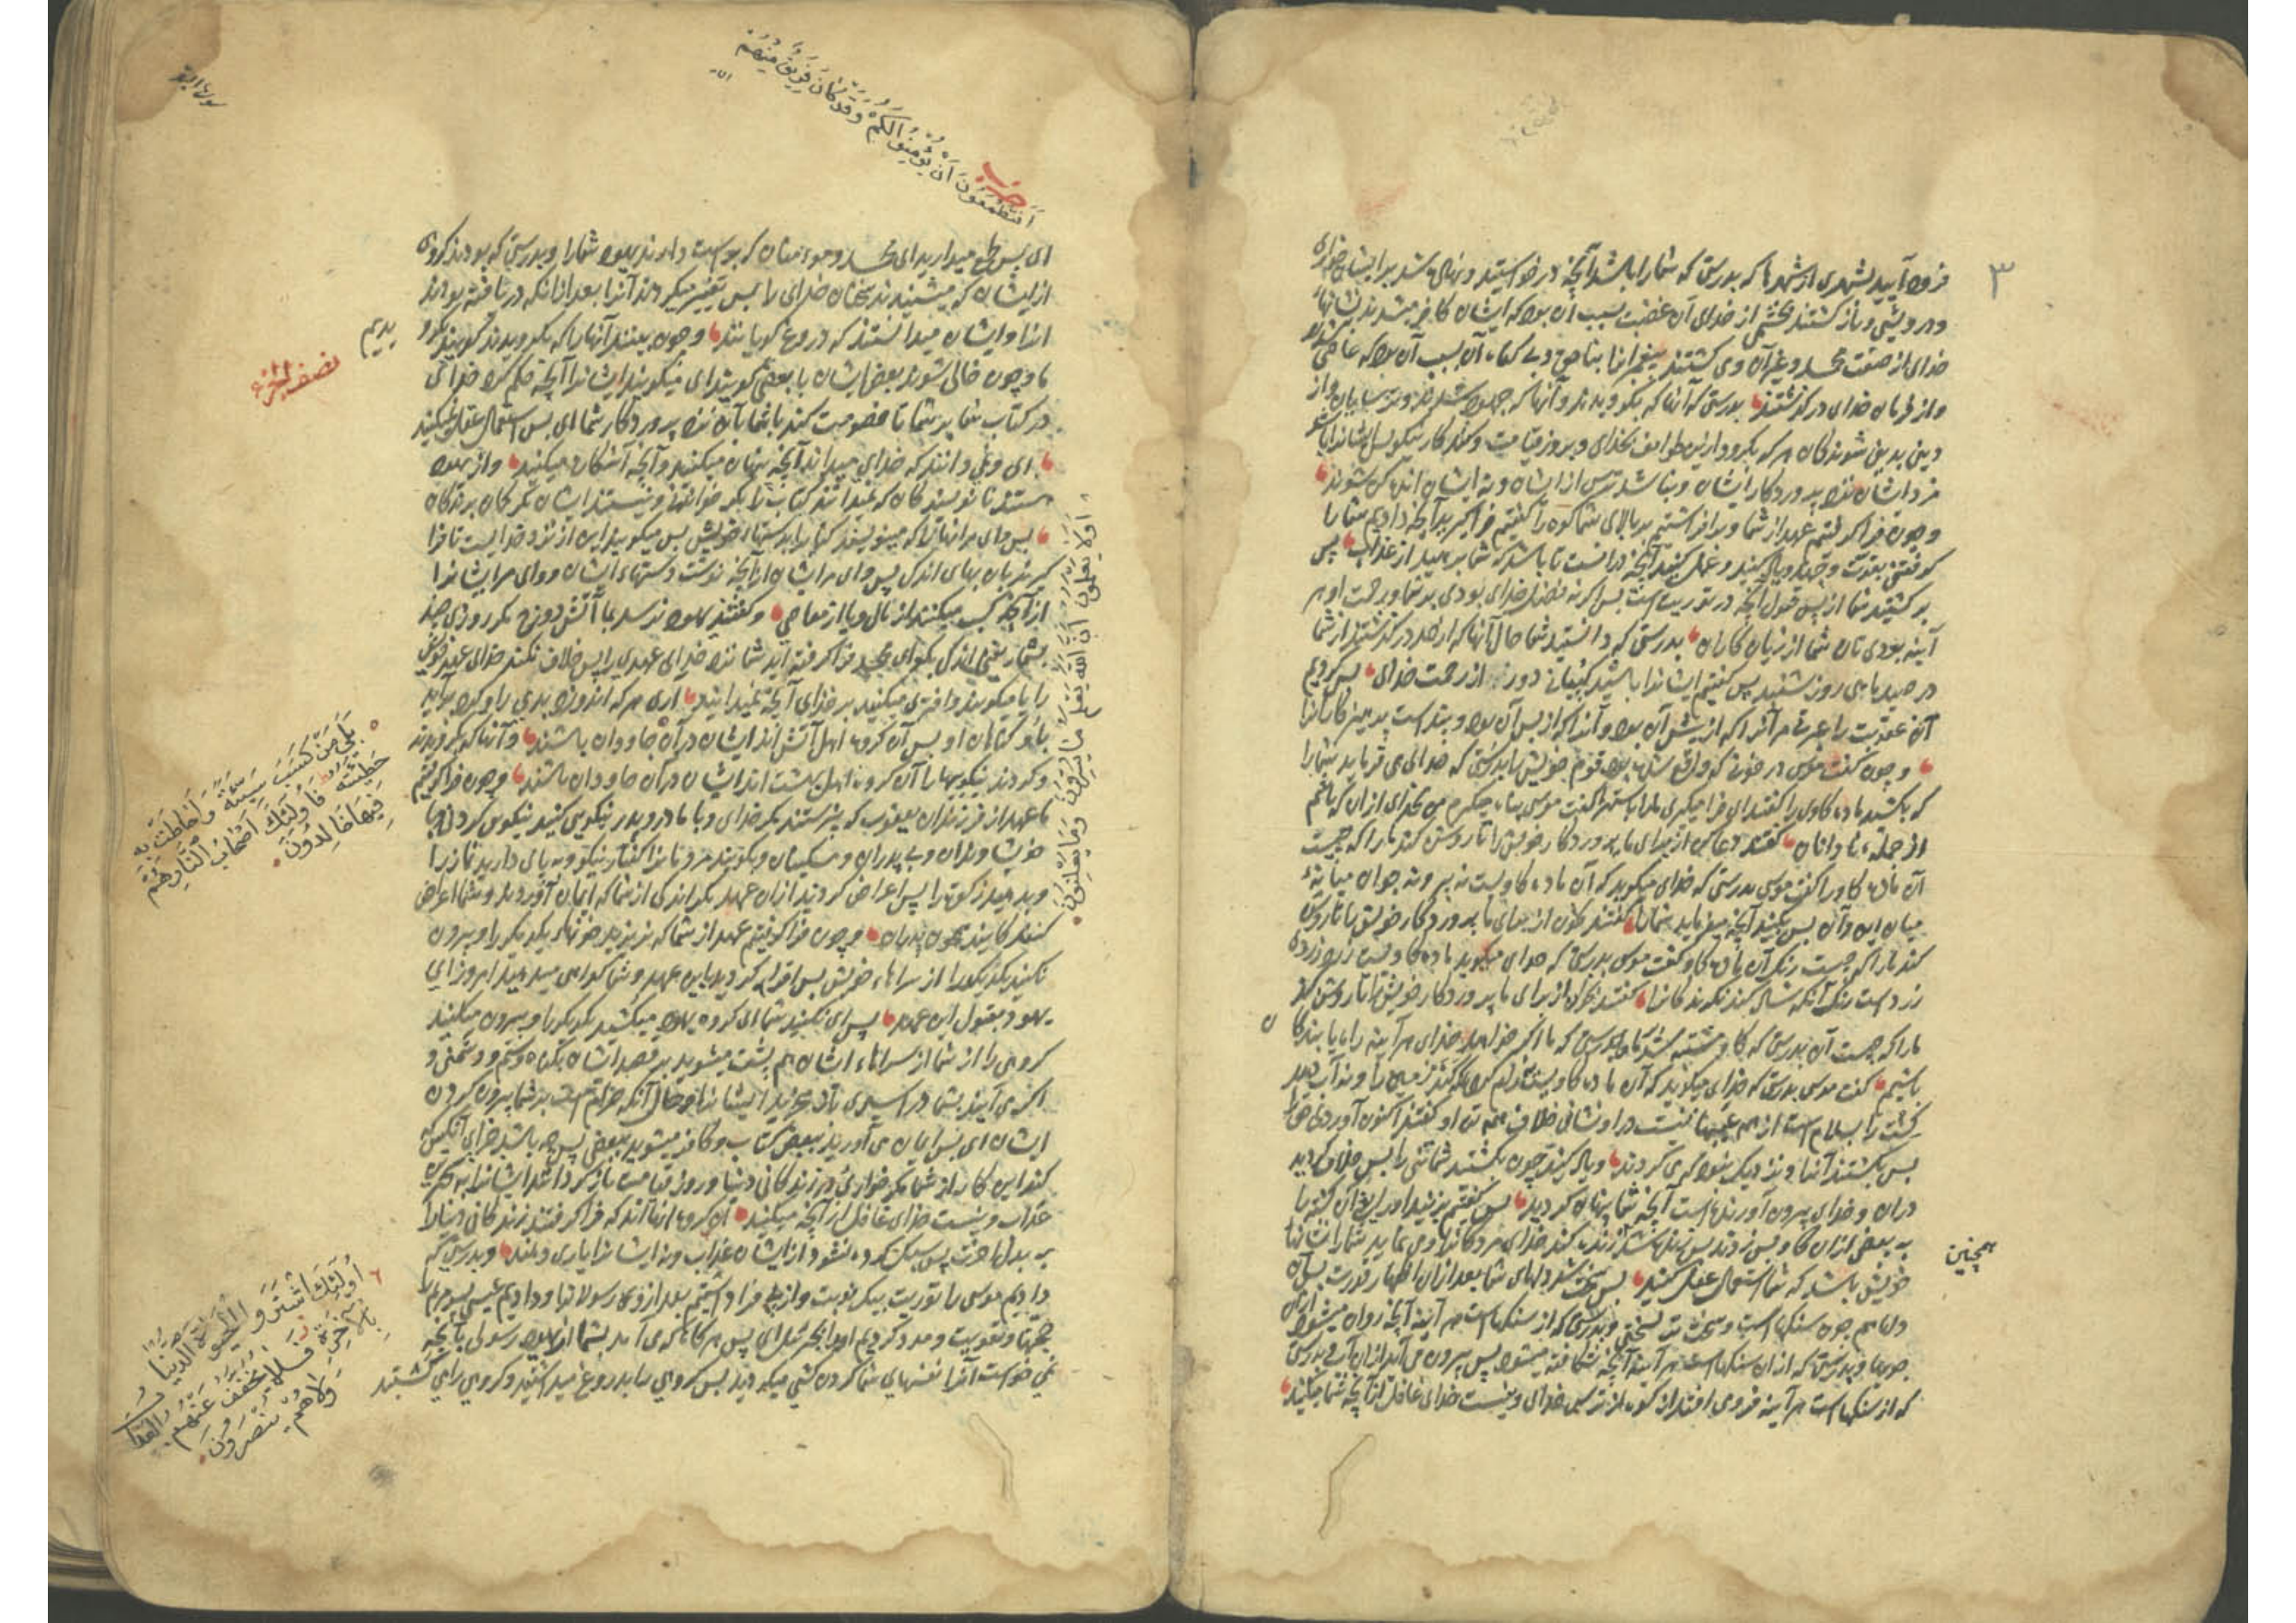 ۳
فرود آیید بشهری از شهرها که بدرستی که شما را باشد آنچه درخواستید و نهاده شد بر ایشان خواری
و درویشی و باز گشتند بخشمی از خدای آن غضب بسبب آن بود که ایشان کافر میشدند بنشانهاء
خدای از صفت محمد و غیر آن و می کشتند پیغمبرانرا بناحق و بی گناه آن بسبب آن بود که عاصی شدند
و از فرمان خدای درگذشتند بدرستی که آنها که بگرویدند و آنها که جهود شدند و ترسایان و از
دینی بدینی شوندگان هر که بگرود ازین طوایف بخدای و بروز قیامت و کند کار نیکو پس ایشانرا باشد
مزد ایشان نزد پروردگار ایشان و نباشد ترس از ایشان و نه ایشان اندوهگن شوند
و چون فرا گرفتیم عهد از شما و برافراشتیم بر بالای شما کوه را گفتیم فراگیرید آنچه دادیم شما را
بقوت و جهد و یاد کنید و عمل کنید آنچه درانست تا باشد که شما بپرهیزید از عذاب پس
برگشتید شما از پس قبول آنچه در توریت است پس اگر نه فضل خدای بودی بر شما و رحمت او هر
آینه بودی تان شما از زیان کاران بدرستی که دانستید شما حال آنها که از حد درگذشتند از شما
در صید ماهی روز شنبه پس گفتیم ایشانرا باشید کپیانی دور از رحمت خدای پس گردیم
آن عقوبت را عبرتی مر آنرا که از پیش آن بود و آنرا که از پس آن بود و پندست پرهیزکارانرا
و چون گفت موسی قوم خویش را بدرستی که خدای می فرماید شما را
که بکشید ماده گاوی را گفتند ای فرا میگیری ما را باستهزا گفت موسی پناه میگیرم من بخدای از آن که باشم
از جمله نادانان گفتند دعا کن از برای ما پروردگار خویش را تا روشن کند ما را که چیست
آن ماده گاو را گفت موسی بدرستی که خدای میگوید که آن ماده گاویست نه پیر و نه جوان میانهٔ
میان این و آن پس بکنید آنچه میفرماید شما را گفتند بخوان از برای ما پروردگار خویش را تا روشن
کند ما را که چیست رنگ آن ماده گاو گفت موسی بدرستی که خدای میگوید ماده گاویست زرد زرده
زردست رنگ آنکه شاد کند نگرندگانرا گفتند بخوان از برای ما پروردگار خویش را تا روشن کند
ما را که چیست آن بدرستی که گاو مشتبه شد بر ما و بدرستی که ما اگر خواهد خدای هر آینه راه یابندگان
باشیم گفت موسی بدرستی که خدای میگوید که آن ماده گاویست نه رام کرده که بکند زمین را و نه آب دهد
کشت را بسلامست از همه عیبها نیست در او نشانی خلاف همه تن او گفتند اکنون آوردی حق را
پس بکشتند آنرا و نزدیک نبود که می کردند و یاد کنید چون بکشتید شما تنی را پس خلاف کردید
دران و خدای بیرون آورنده است آنچه شما پنهان کردید پس گفتیم بزنید او را یعنی آن کشته را
به بعضی از ان گاو پس زدند پس زنده شد زنده کند خدای مردگانرا و می نماید شما را نشانها
همچنین
خویش باشد که شما استعمال عقل کنید پس سخت شد دلهای شما بعد از آن اظهار قدرت پس آن
دلها همچون سنگهاست و سخت تر بسختی و بدرستی که از سنگهاست هر آینه آنچه روان میشود از آن
جویها و بدرستی که از ان سنگهاست هر آینه آنچه شکافته میشود پس بیرون می آید از آن آب و بدرستی
که از سنگهاست هر آینه فرو می افتد از کوه از ترس خدای و نیست خدای غافل از آنچه شما میکنید
سورة البقر
حزب
أَفَتَطْمَعُونَ أَنْ يُؤْمِنُوا لَكُمْ وَقَدْ كَانَ فَرِيقٌ مِنْهُمْ
ای پس طمع میدارید ای محمد و مومنان که بوست دارند یهود شما را و بدرستی که بودند گروهی
از ایشان که میشنیدند سخنان خدای را پس تغییر میکردند آنرا بعد از آنکه دریافته بودند
انرا و ایشان میدانستند که دروغ گویانند و چون بینند آنها را که بگرویدند گویند بگرو
یدیم
نصف الجزء
ما و چون خالی شوند بعض ایشان با بعضی گویند ای میگویید ایشانرا آنچه حکم کرد خدای
در کتاب شما بر شما تا خصومت کنند با شما بآن نزد پروردگار شما ای پس استعمال عقل نمیکنید
ای و نمی دانند که خدای میداند آنچه پنهان میکنند و آنچه آشکارا میکنند و از یهود
هستند نانویسندگان که نمیدانند کتاب را مگر خواندنی و نیستند ایشان مگر گمان برندگان
پس وای مر آنها را که مینویسند کتاب را بدستهاء خویش پس میگویند این از نزد خدایست تا فرا
گیرند بآن بهای اندک پس وای مر ایشان از آنچه نوشت دستهاء ایشان و وای مر ایشانرا
از آنچه کسب میکنند از مال و یا از معاصی و گفتند یهود نرسد بما آتش دوزخ مگر روزی چند
بشمار یعنی اندک بگو ای محمد فرا گرفته اید شما نزد خدای عهدی را پس خلاف نکند خدای عهد خویش
را یا میگویید و افتری میکنید بر خدای آنچه نمیدانید اری هر که اندوزد بدی را و گرد برآید
باو گناهان او پس آن گروه اهل آتش اند ایشان در آن جاودان باشند و آنها که بگرویدند
و کردند نیکویها را آن گروه اهل بهشت اند ایشان در آن جاودان باشند و چون فرا گرفتیم
ما عهد از فرزندان یعقوب که نپرستند مگر خدای و با مادر و پدر نیکویی کنید نیکویی کردنی و با
خویشاوندان و بی پدران و مسکینان و بگویید مردمانرا گفتار نیکو و بپای دارید نماز را
و بدهید زکوة را پس اعراض کردید از ان عهد مگر اندکی از شما که ایمان آوردید و شما اعراض
کنندگانید همچون پدران و چون فرا گرفتیم عهد از شما که نریزید خونهاء یکدیگر را و بیرون
نکنید یکدیگر را از سراهاء خویش پس اقرار کردید باین عهد و شما گواهی میدهید امروز ای
یهود بقبول این عهد پس ای نکنید شما ای گروه یهود میکشید یکدیگر را و بیرون میکنید
گروهی را از شما از سراهاء ایشان هم پشت میشوید بر قصد ایشان بگناه و ستم و دشمنی و
اگر می آیند بشما در اسیری باز میخرید ایشانرا و حال آنکه حرام است بر شما بیرون کردن
ایشان ای پس ایمان می آورید ببعضی کتاب و کافر میشوید ببعضی پس چه باشد جزای آنکس که
کند این کار از شما مگر خواری در زندگانی دنیا و روز قیامت بازگردانند ایشانرا به سخت ترین
عذاب و نیست خدای غافل از آنچه میکنید آن گروه آنهااند که فرا گرفتند زندگانی دنیا را
به بدل آخرت پس سبک کرده نشود از ایشان عذاب و نه ایشانرا یاری دهند و بدرستی که
دادیم موسی را توریت بیک نوبت و از پی فرا داشتیم بعد از وی رسولانرا و دادیم عیسی پسر مریم را
حجتها و تقویت و مدد کردیم او را بجبرئیل ای پس هر گاه که می آید بشما از یهود رسولی بآنچه
نمی خواست آنرا نفسهای شما گردن کشی میکردید پس گروهی را بدروغ میداشتید و گروهی را می کشتید
أَوَلَا يَعْلَمُونَ أَنَّ اللَّهَ يَعْلَمُ مَا يُسِرُّونَ وَمَا يُعْلِنُونَ
بَلَىٰ مَنْ كَسَبَ سَيِّئَةً وَأَحَاطَتْ بِهِ
خَطِيئَتُهُ فَأُولَٰئِكَ أَصْحَابُ النَّارِ هُمْ
فِيهَا خَالِدُونَ
أُولَٰئِكَ اشْتَرَوُا الْحَيٰوةَ الدُّنْيَا
بِالْآخِرَةِ فَلَا يُخَفَّفُ عَنْهُمُ الْعَذَابُ
وَلَا هُمْ يُنْصَرُونَ